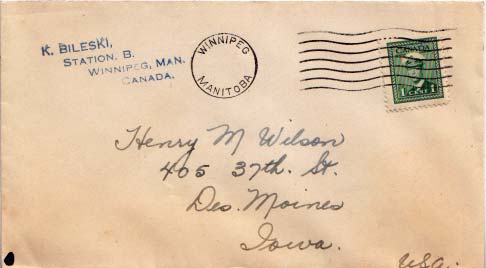 K. BILESKI,
STATION. B.
WINNIPEG, MAN.
CANADA.
WINNIPEG
MANITOBA
CANADA
1 CENT 1
Henry M Wilson
405 37th. St.
Des. Moines
Iowa.
USA.